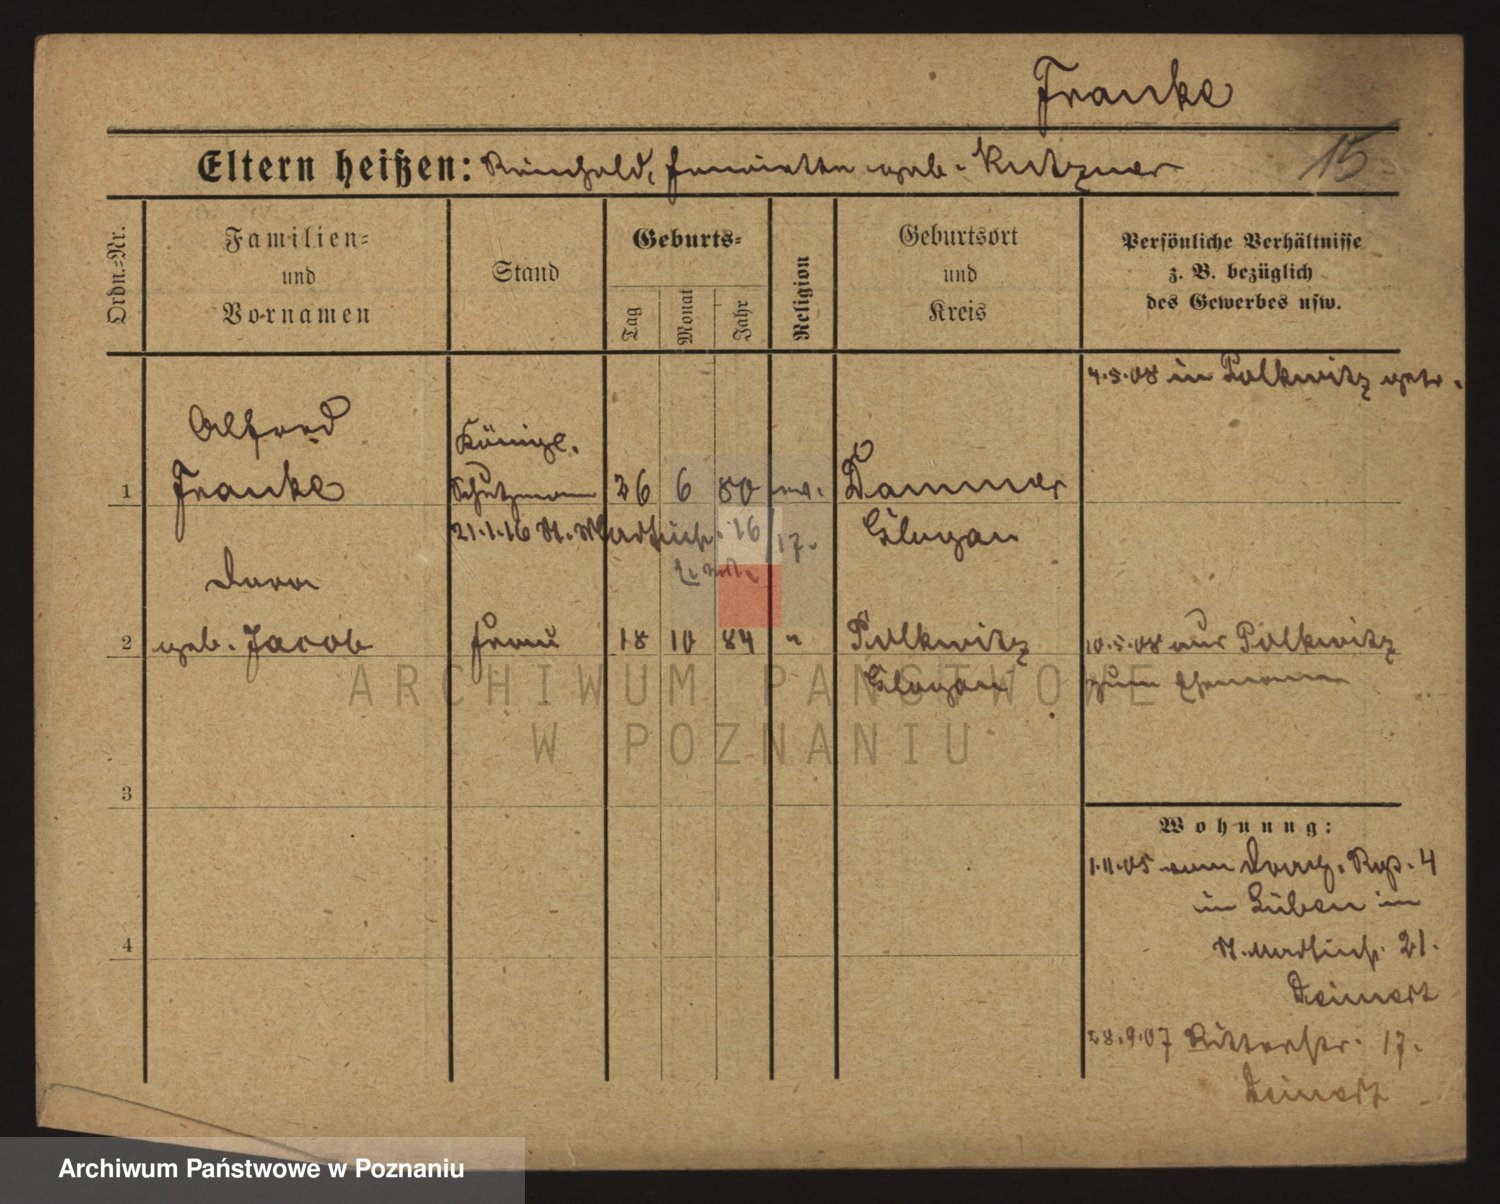 Franke
Eltern heißen: Reinhold, Henriette geb. Kutzner
15
Ordn.-Nr.
Familien-
und
Vornamen
Stand
Geburts-
Tag
Monat
Jahr
Religion
Geburtsort
und
Kreis
Persönliche Verhältnisse
z. B. bezüglich
des Gewerbes usw.
4.5.08 in Polkwitz getr.
Alfred
Königl.
1 Franke Schutzmann 26 6 80 ev. Dammer
21.1.16 St. Martinstr. 16/17. Glogau
Dora
2 geb. Jacob Frau 18 10 84 " Polkwitz 10.5.08 aus Polkwitz
Glogau zum Ehemann
3
Wohnung:
1.11.05 vom Drag. Rgt. 4
in Lüben in
4
St. Martinstr. 21.
Deinert
28.9.07 Ritterstr. 17.
Deinert
ARCHIWUM PAŃSTWOWE
W POZNANIU
Archiwum Państwowe w Poznaniu